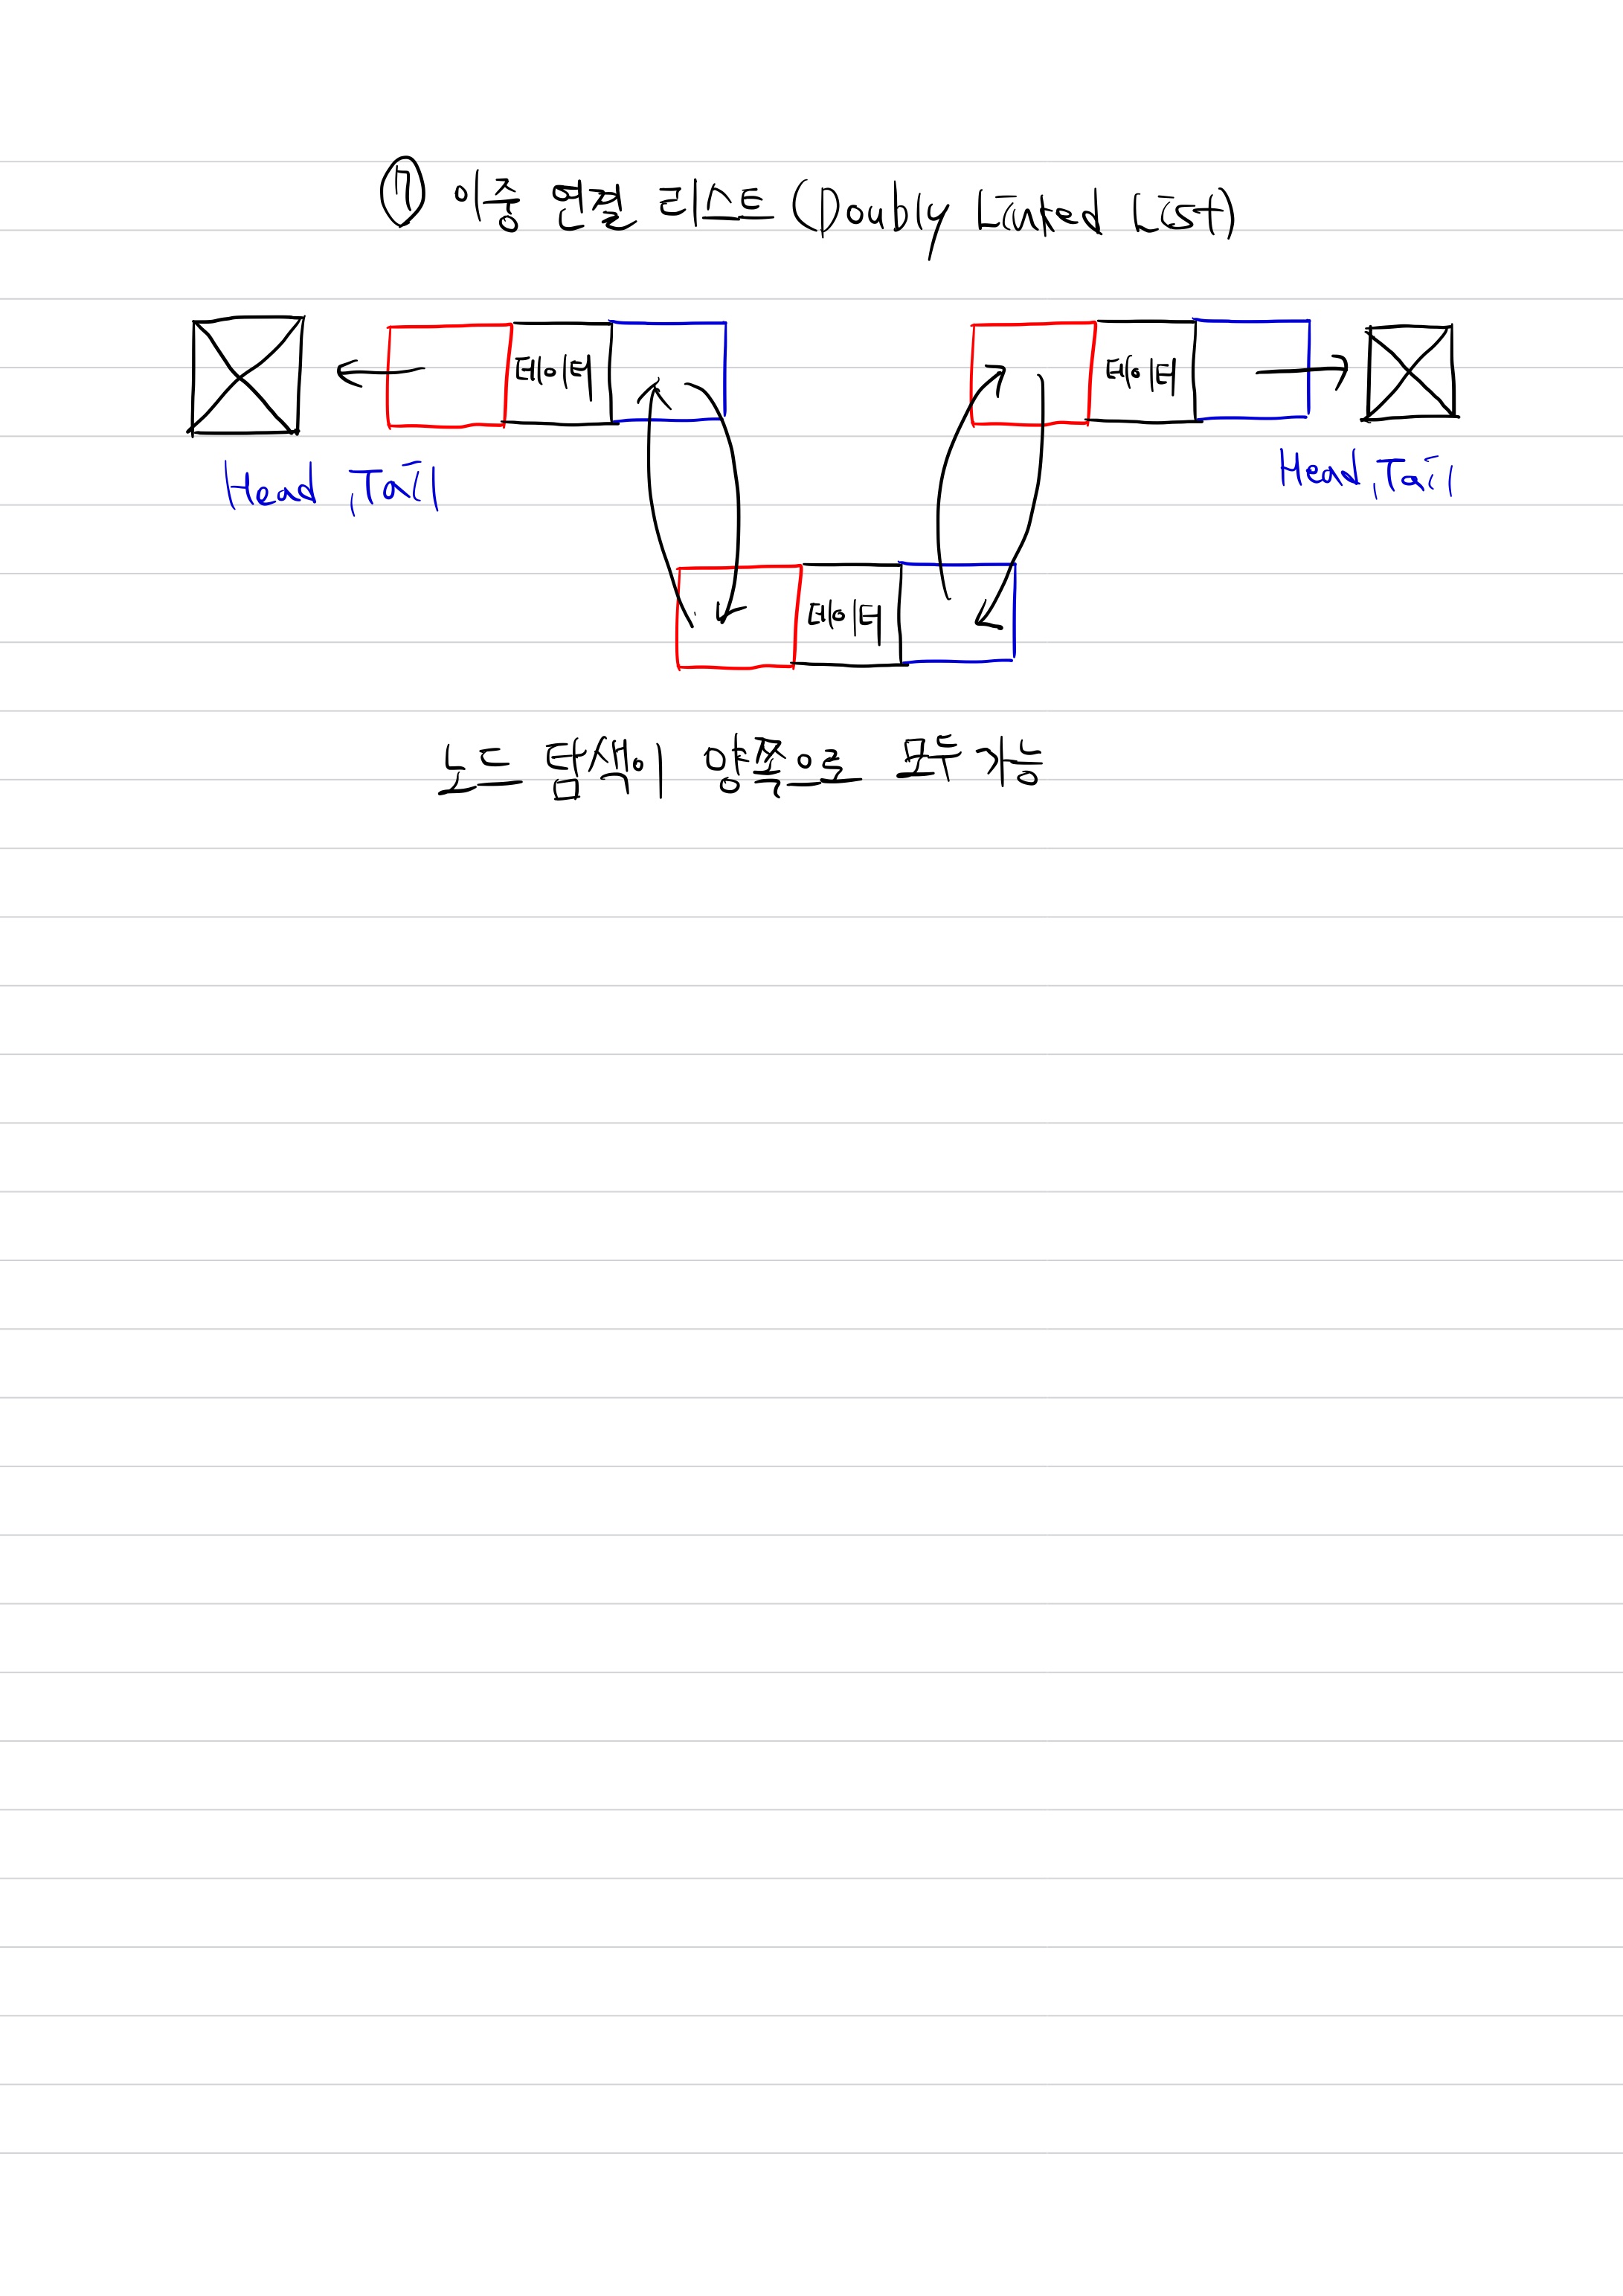 ⑦ 이중 연결 리스트 (Doubly Linked List)
데이터 데이터
Head, Tail Head, Tail
데이터
노드 탐색이 양쪽으로 모두 가능